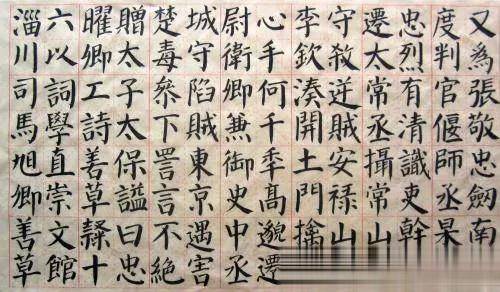 又為張敬忠劒南
度判官偃師丞杲
忠烈有清識吏幹
遷太常丞攝常山
守殺逆賊安禄山
李欽湊開土門擒
心手何千秊高邈遷
尉衛卿兼御史中丞
城守陷賊東京遇害
楚毒叅下詈言不絕
贈太子太保謚曰忠
曜卿工詩善草隸十
六以詞學直崇文館
淄川司馬旭卿善草